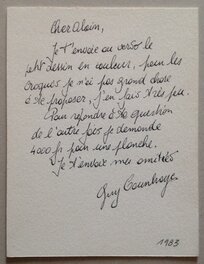 Cher Alain,
Je t'envoie au verso le
petit dessin en couleur, pour les
croquis je n'ai pas grand chose
à te proposer, j'en fais très peu.
Pour répondre à ta question
de l'autre fois je demande
4000 fr pour une planche.
Je t'envoie mes amitiés
Guy Counhaye
1983